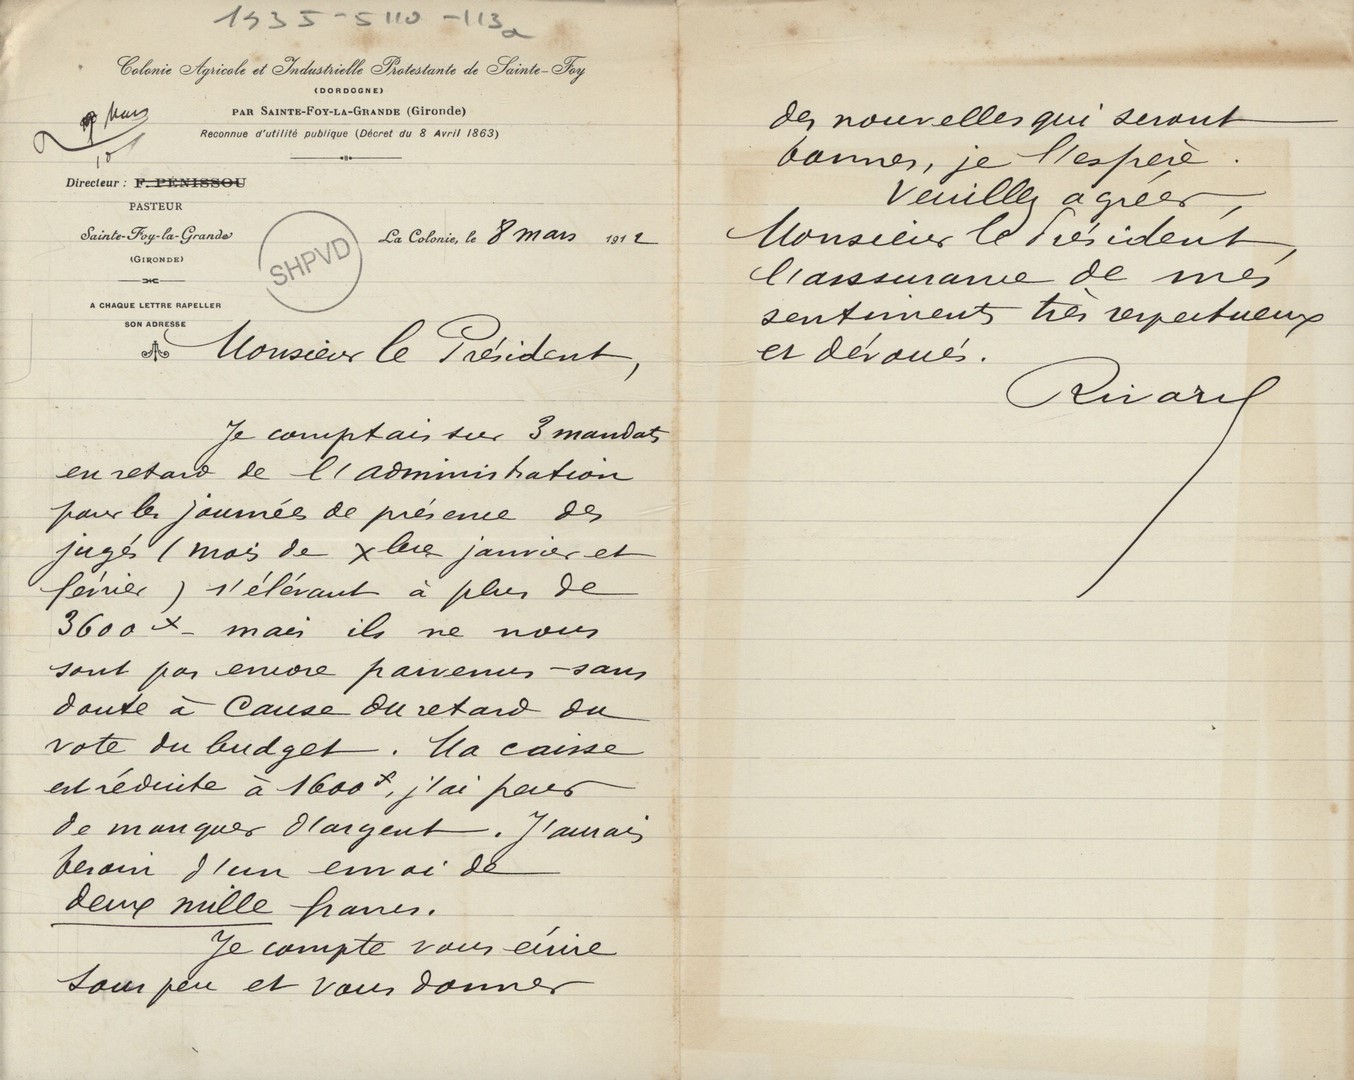 1935-5110-113a
Colonie Agricole et Industrielle Protestante de Sainte-Foy
(DORDOGNE)
PAR SAINTE-FOY-LA-GRANDE (Gironde)
Reconnue d'utilité publique (Décret du 8 Avril 1863)
9 Mars
Directeur : F. PÉNISSOU
PASTEUR
Sainte-Foy-la-Grande
(GIRONDE)
La Colonie, le 8 mars 1912
SHPVD
A CHAQUE LETTRE RAPELLER
SON ADRESSE
Monsieur le Président,
Je comptais sur 3 mandats
en retard de l'administration
pour les journées de présence des
jugés (mois de Xbre janvier et
février) s'élévant à plus de
3600 f - mais ils ne nous
sont pas encore parvenus - sans
doute à cause du retard du
vote du budget. Ma caisse
est réduite à 1600 f, j'ai peur
de manquer d'argent. J'aurais
besoin d'un envoi de
deux mille francs.
Je compte vous écrire
sous peu et vous donner
des nouvelles qui seront
bonnes, je l'espère.
Veuillez agréer,
Monsieur le Président,
l'assurance de mes
sentiments très respectueux
et dévoués.
Rivard